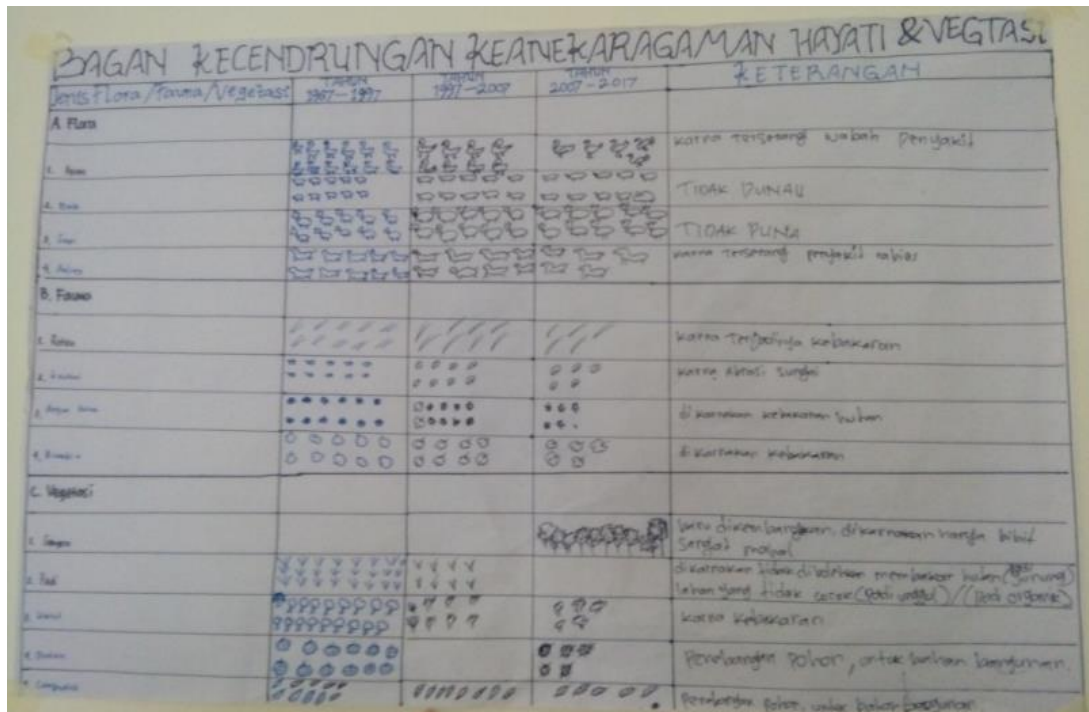 BAGAN KECENDRUNGAN KEANEKARAGAMAN HAYATI & VEGTASI
Jenis Flora/Fauna/Vegetasi
TAHUN
1987-1997
TAHUN
1997-2007
TAHUN
2007-2017
KETERANGAN
A. Flora
karna terserang wabah Penyakit
TIDAK
3. Sapi
TIDAK PUNA
karna terserang penyakit rabies
B. Fauna
1. Rotan
karna Terjadinya kebakaran
karna Abrasi sungai
dikarnakan kebakaran hutan
dikarnakan kebakaran
C. Vegetasi
1. Sengon
baru dikembangkan, dikarnakan harga bibit
sangat mahal
2. Padi
dikarnakan tidak dibolehkan membakar hutan (gunung)
lahan yang tidak cocok (padi unggul) // (padi organik)
karna kebakaran
4. Durian
Penebangan Pohon, untuk bahan bangunan.
5. Cempedak
Penebangan Pohon, untuk bahan bangunan